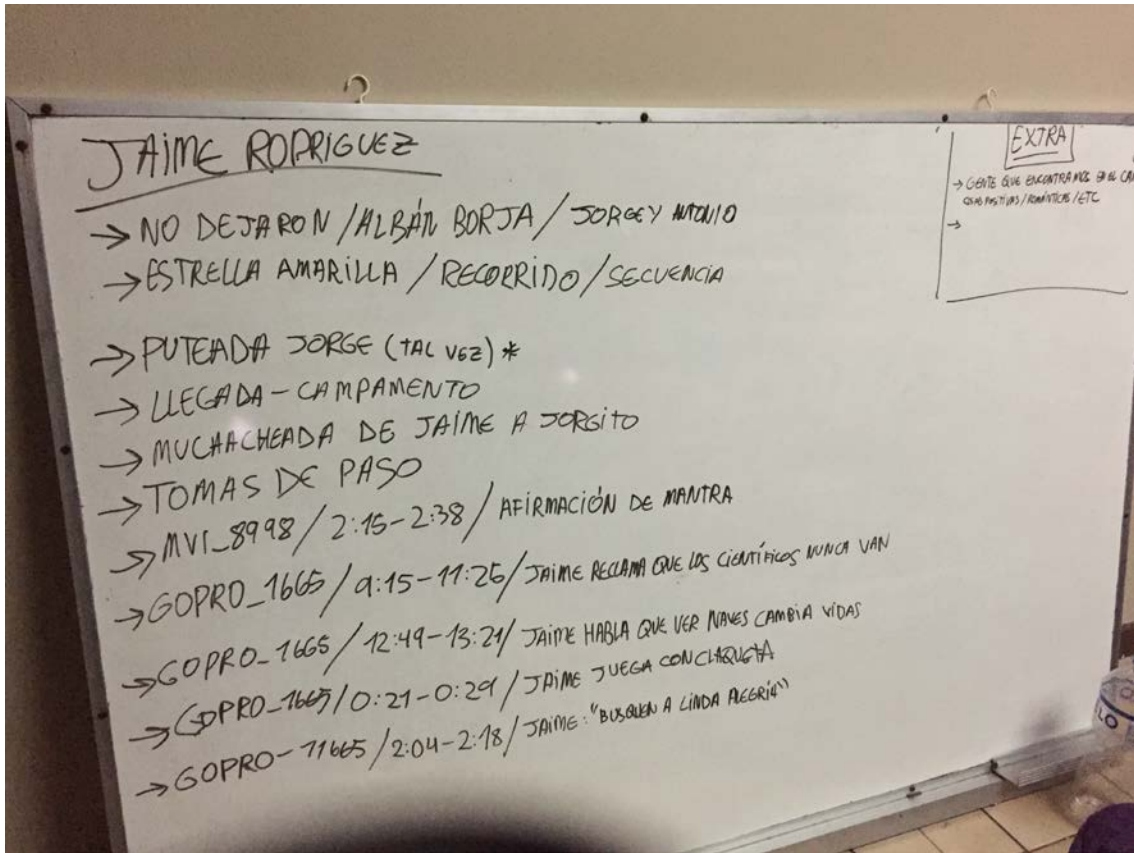 JAIME RODRIGUEZ
→ NO DEJARON / ALBÁN BORJA / JORGE Y ANTONIO
→ ESTRELLA AMARILLA / RECORRIDO / SECUENCIA
→ PUTEADA JORGE (TAL VEZ) *
→ LLEGADA - CAMPAMENTO
→ MUCHACHEADA DE JAIME A JORGITO
→ TOMAS DE PASO
→ MVI_8998 / 2:15-2:38 / AFIRMACIÓN DE MANTRA
→ GOPRO_1665 / 9:15-11:25 / JAIME RECLAMA QUE LOS CIENTÍFICOS NUNCA VAN
→ GOPRO_1665 / 12:49-13:21 / JAIME HABLA QUE VER NAVES CAMBIA VIDAS
→ GOPRO_1665 / 0:21-0:29 / JAIME JUEGA CON CLAQUETA
→ GOPRO-11665 / 2:04-2:18 / JAIME: "BUSQUEN A LINDA ALEGRÍA"
EXTRA
→ GENTE QUE ENCONTRAMOS EN EL CAM
COSAS POSITIVAS / ROMÁNTICAS / ETC
→
LO